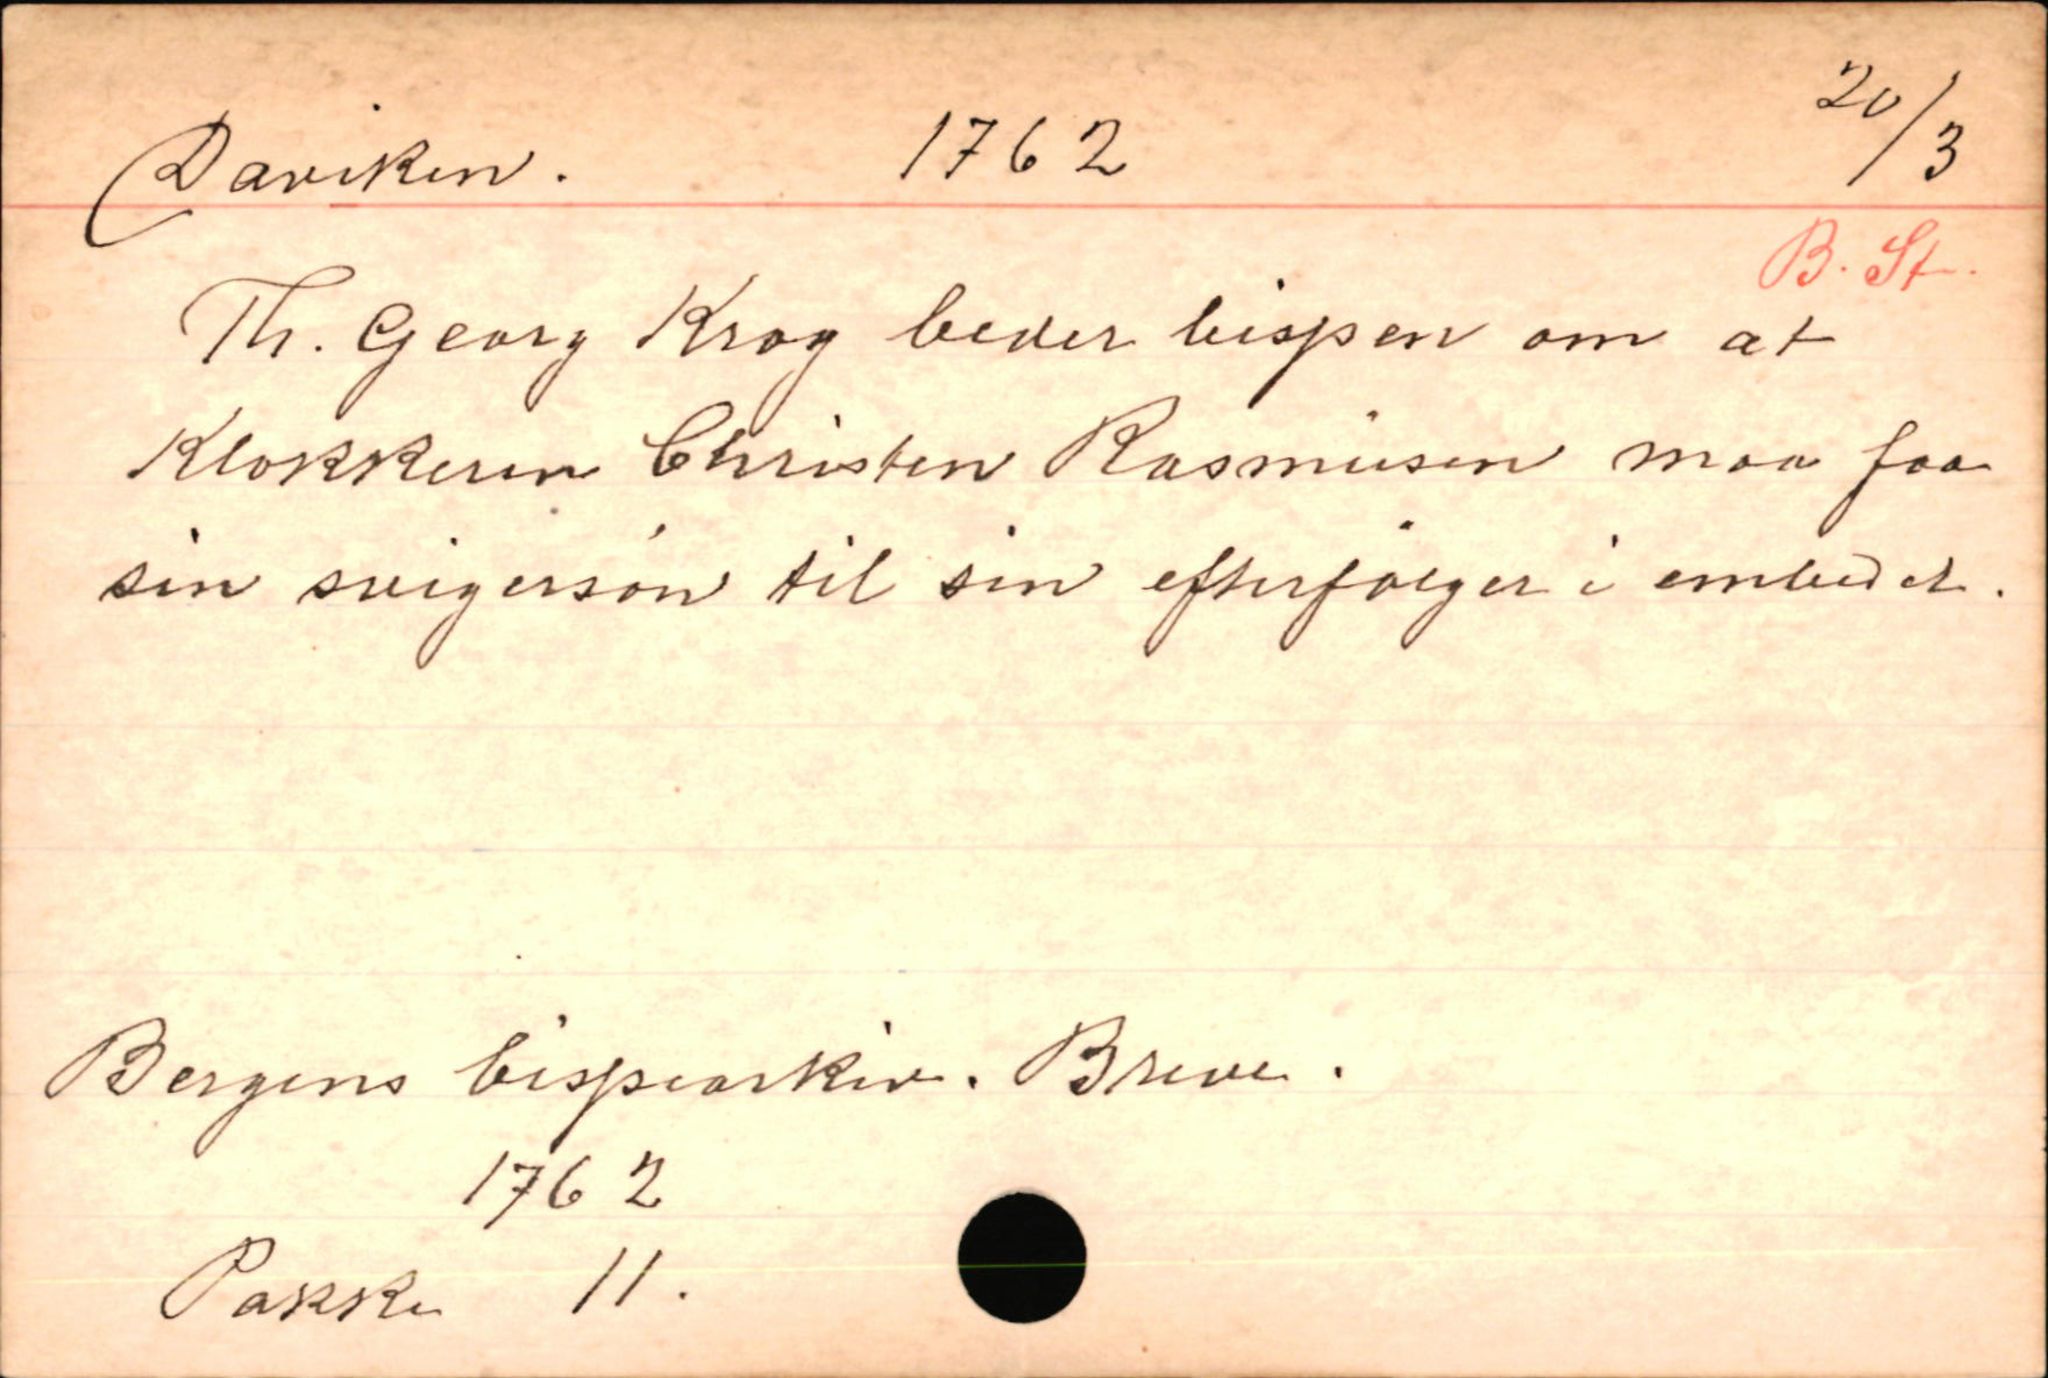 Daviken. 1762 20/3
B. St.
Th. Georg Krog beder bispen om at
Klokkeren Christen Rasmusen maa faa
sin svigersön til sin efterfölger i embedet.
Bergens bispearkiv. Breve.
1762
Pakke 11.